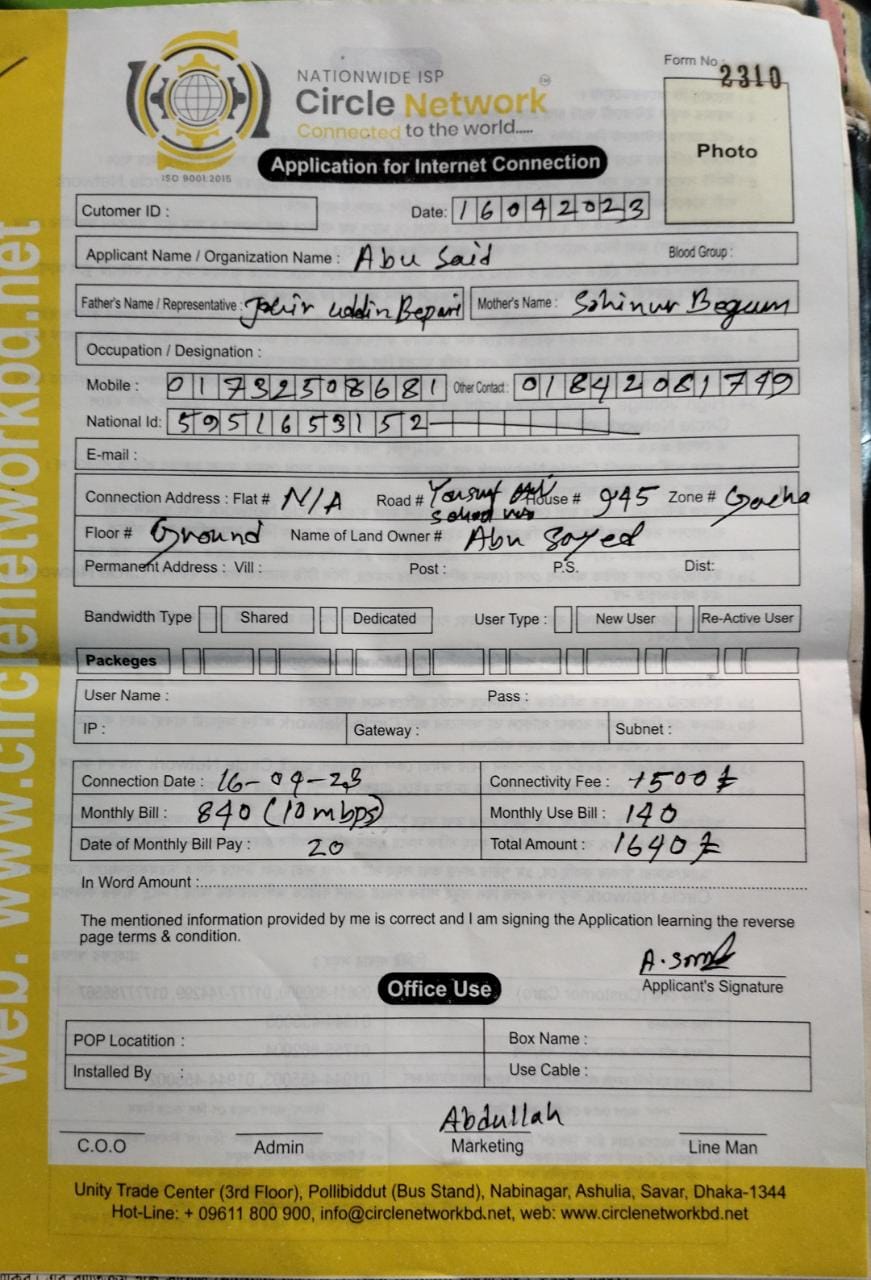 Form No. 2310
NATIONWIDE ISP
Circle Network
Connected to the world.....
ISO 9001:2015
Application for Internet Connection
Photo
Cutomer ID : Date: 16042023
Applicant Name / Organization Name : Abu Said Blood Group :
Father's Name / Representative : Johir Uddin Bepari Mother's Name : Sahinur Begum
Occupation / Designation :
Mobile : 01732508681 Other Contact : 01842081749
National Id: 5951653152
E-mail :
Connection Address : Flat # N/A Road # Yousuf House # 945 Zone # Gacha
Floor # Ground Name of Land Owner # Abu Sayed
Permanent Address : Vill : Post : P.S. Dist:
Bandwidth Type Shared Dedicated User Type : New User Re-Active User
Packeges
User Name : Pass :
IP : Gateway : Subnet :
Connection Date : 16-04-23 Connectivity Fee : 1500
Monthly Bill : 840 (10 mbps) Monthly Use Bill : 140
Date of Monthly Bill Pay : 20 Total Amount : 1640
In Word Amount :
The mentioned information provided by me is correct and I am signing the Application learning the reverse
page terms & condition.
Applicant's Signature
Office Use
POP Locatition : Box Name :
Installed By : Use Cable :
Abdullah
C.O.O Admin Marketing Line Man
Unity Trade Center (3rd Floor), Pollibiddut (Bus Stand), Nabinagar, Ashulia, Savar, Dhaka-1344
Hot-Line: + 09611 800 900, info@circlenetworkbd.net, web: www.circlenetworkbd.net
web: www.circlenetworkbd.net